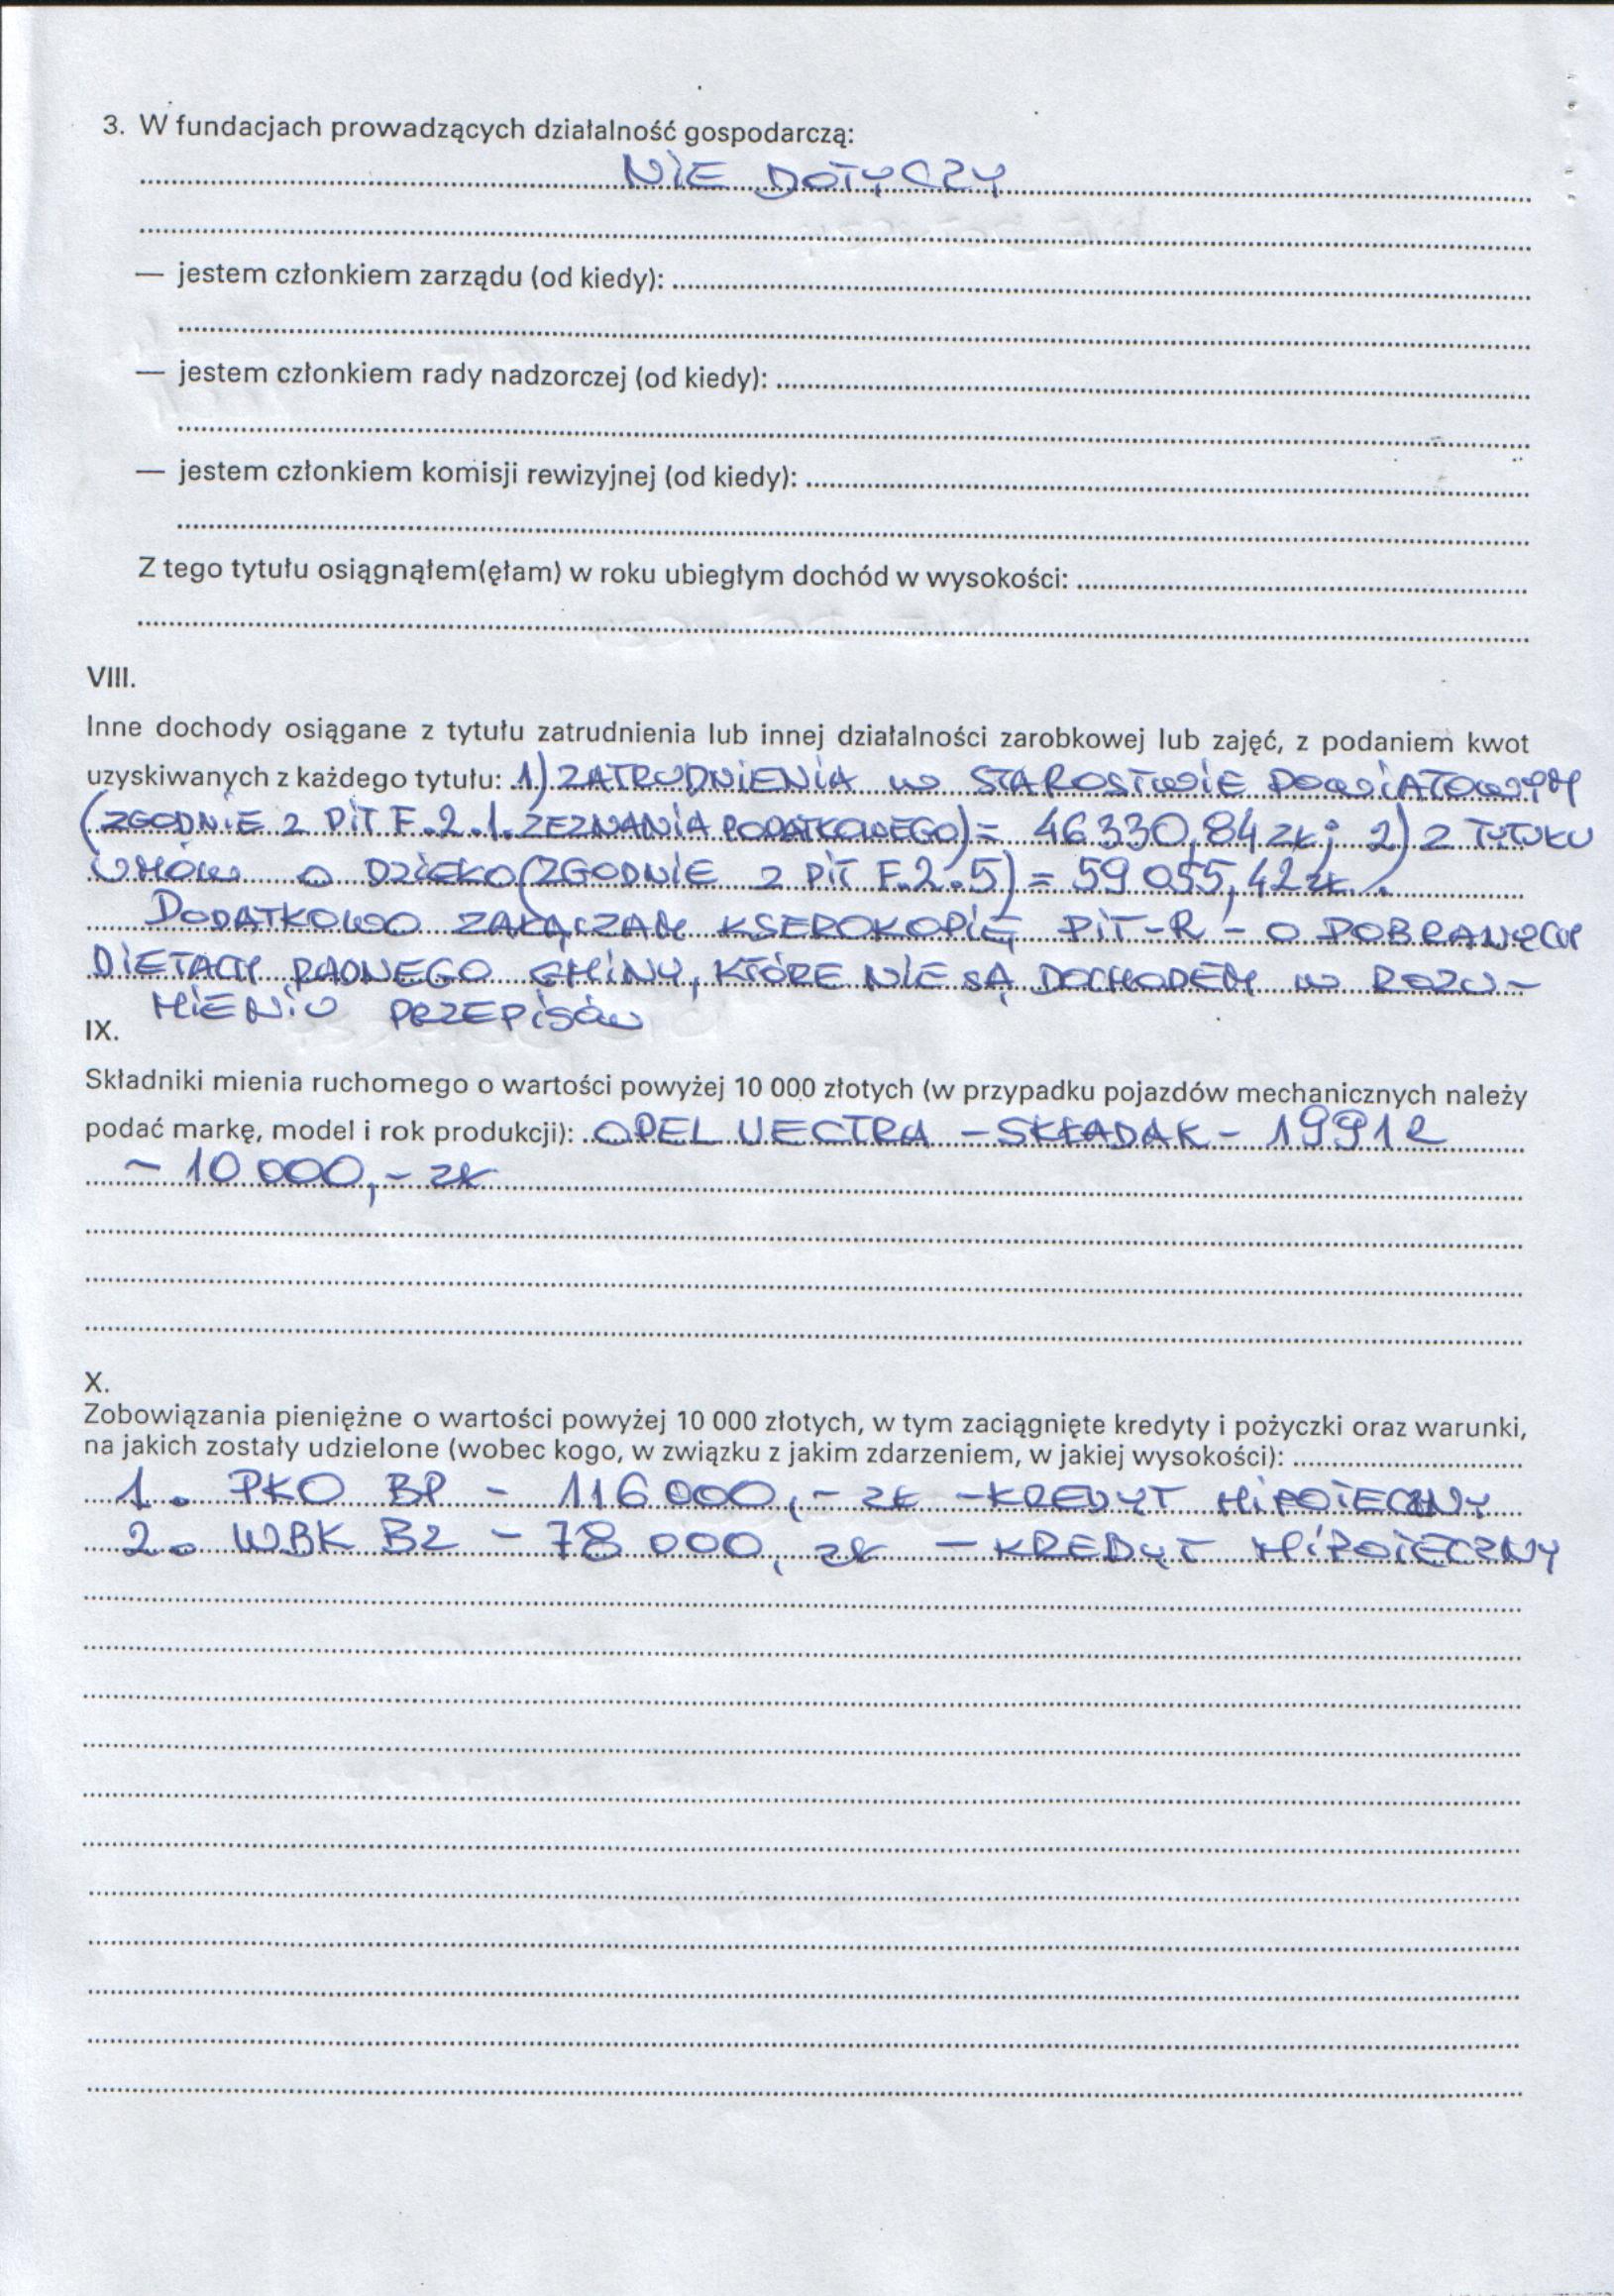 3. W fundacjach prowadzących działalność gospodarczą:
NIE DOTYCZY
— jestem członkiem zarządu (od kiedy):
— jestem członkiem rady nadzorczej (od kiedy):
— jestem członkiem komisji rewizyjnej (od kiedy):
Z tego tytułu osiągnąłem(ęłam) w roku ubiegłym dochód w wysokości:
VIII.
Inne dochody osiągane z tytułu zatrudnienia lub innej działalności zarobkowej lub zajęć, z podaniem kwot
uzyskiwanych z każdego tytułu: 1) ZATRUDNIENIA W STAROSTWIE POWIATOWYM
(ZGODNIE Z PIT F.2.1. ZEZNANIA PODATKOWEGO) = 46330,84 zł; 2) Z TYTUŁU
UMÓW O DZIEŁO (ZGODNIE Z PIT F.2.5) = 59 055,42 zł.
DODATKOWO ZAŁĄCZAM KSEROKOPIĘ PIT-R - O POBRANYCH
DIETACH RADNEGO GMINY, KTÓRE NIE SĄ DOCHODEM W ROZU-
MIENIU PRZEPISÓW
IX.
Składniki mienia ruchomego o wartości powyżej 10 000 złotych (w przypadku pojazdów mechanicznych należy
podać markę, model i rok produkcji): OPEL VECTRA - SKŁADAK - 1991 R
~ 10 000,- zł
X.
Zobowiązania pieniężne o wartości powyżej 10 000 złotych, w tym zaciągnięte kredyty i pożyczki oraz warunki,
na jakich zostały udzielone (wobec kogo, w związku z jakim zdarzeniem, w jakiej wysokości):
1. PKO BP - 116 000,- zł - KREDYT HIPOTECZNY
2. WBK BZ - 78 000, zł - KREDYT HIPOTECZNY